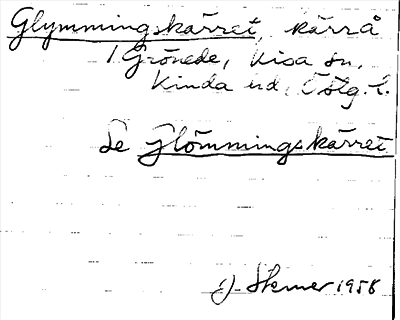 Glymmingskärret, kärrå
i Grönede, Kisa sn,
Kinda hd, Östg. l.
Se Flömmingskärret
1958